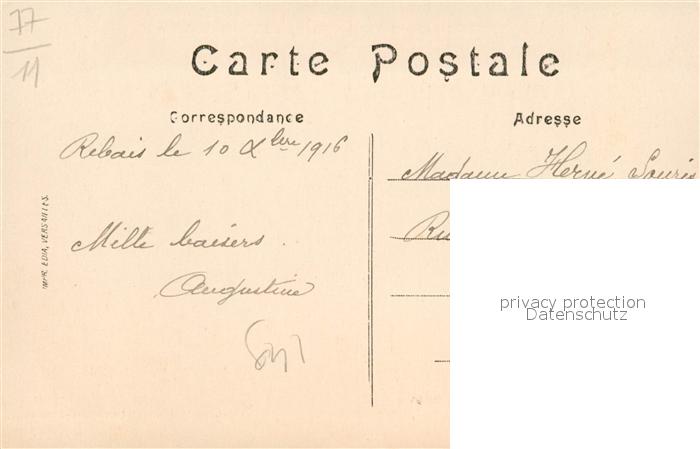 77
11
Carte Postale
Correspondance
Adresse
Rebais le 10 Xbre 1916
Madame Hervé Souris
Mille baisers.
Augustine
IMPR. EDIA, VERSAILLES.
privacy protection
Datenschutz